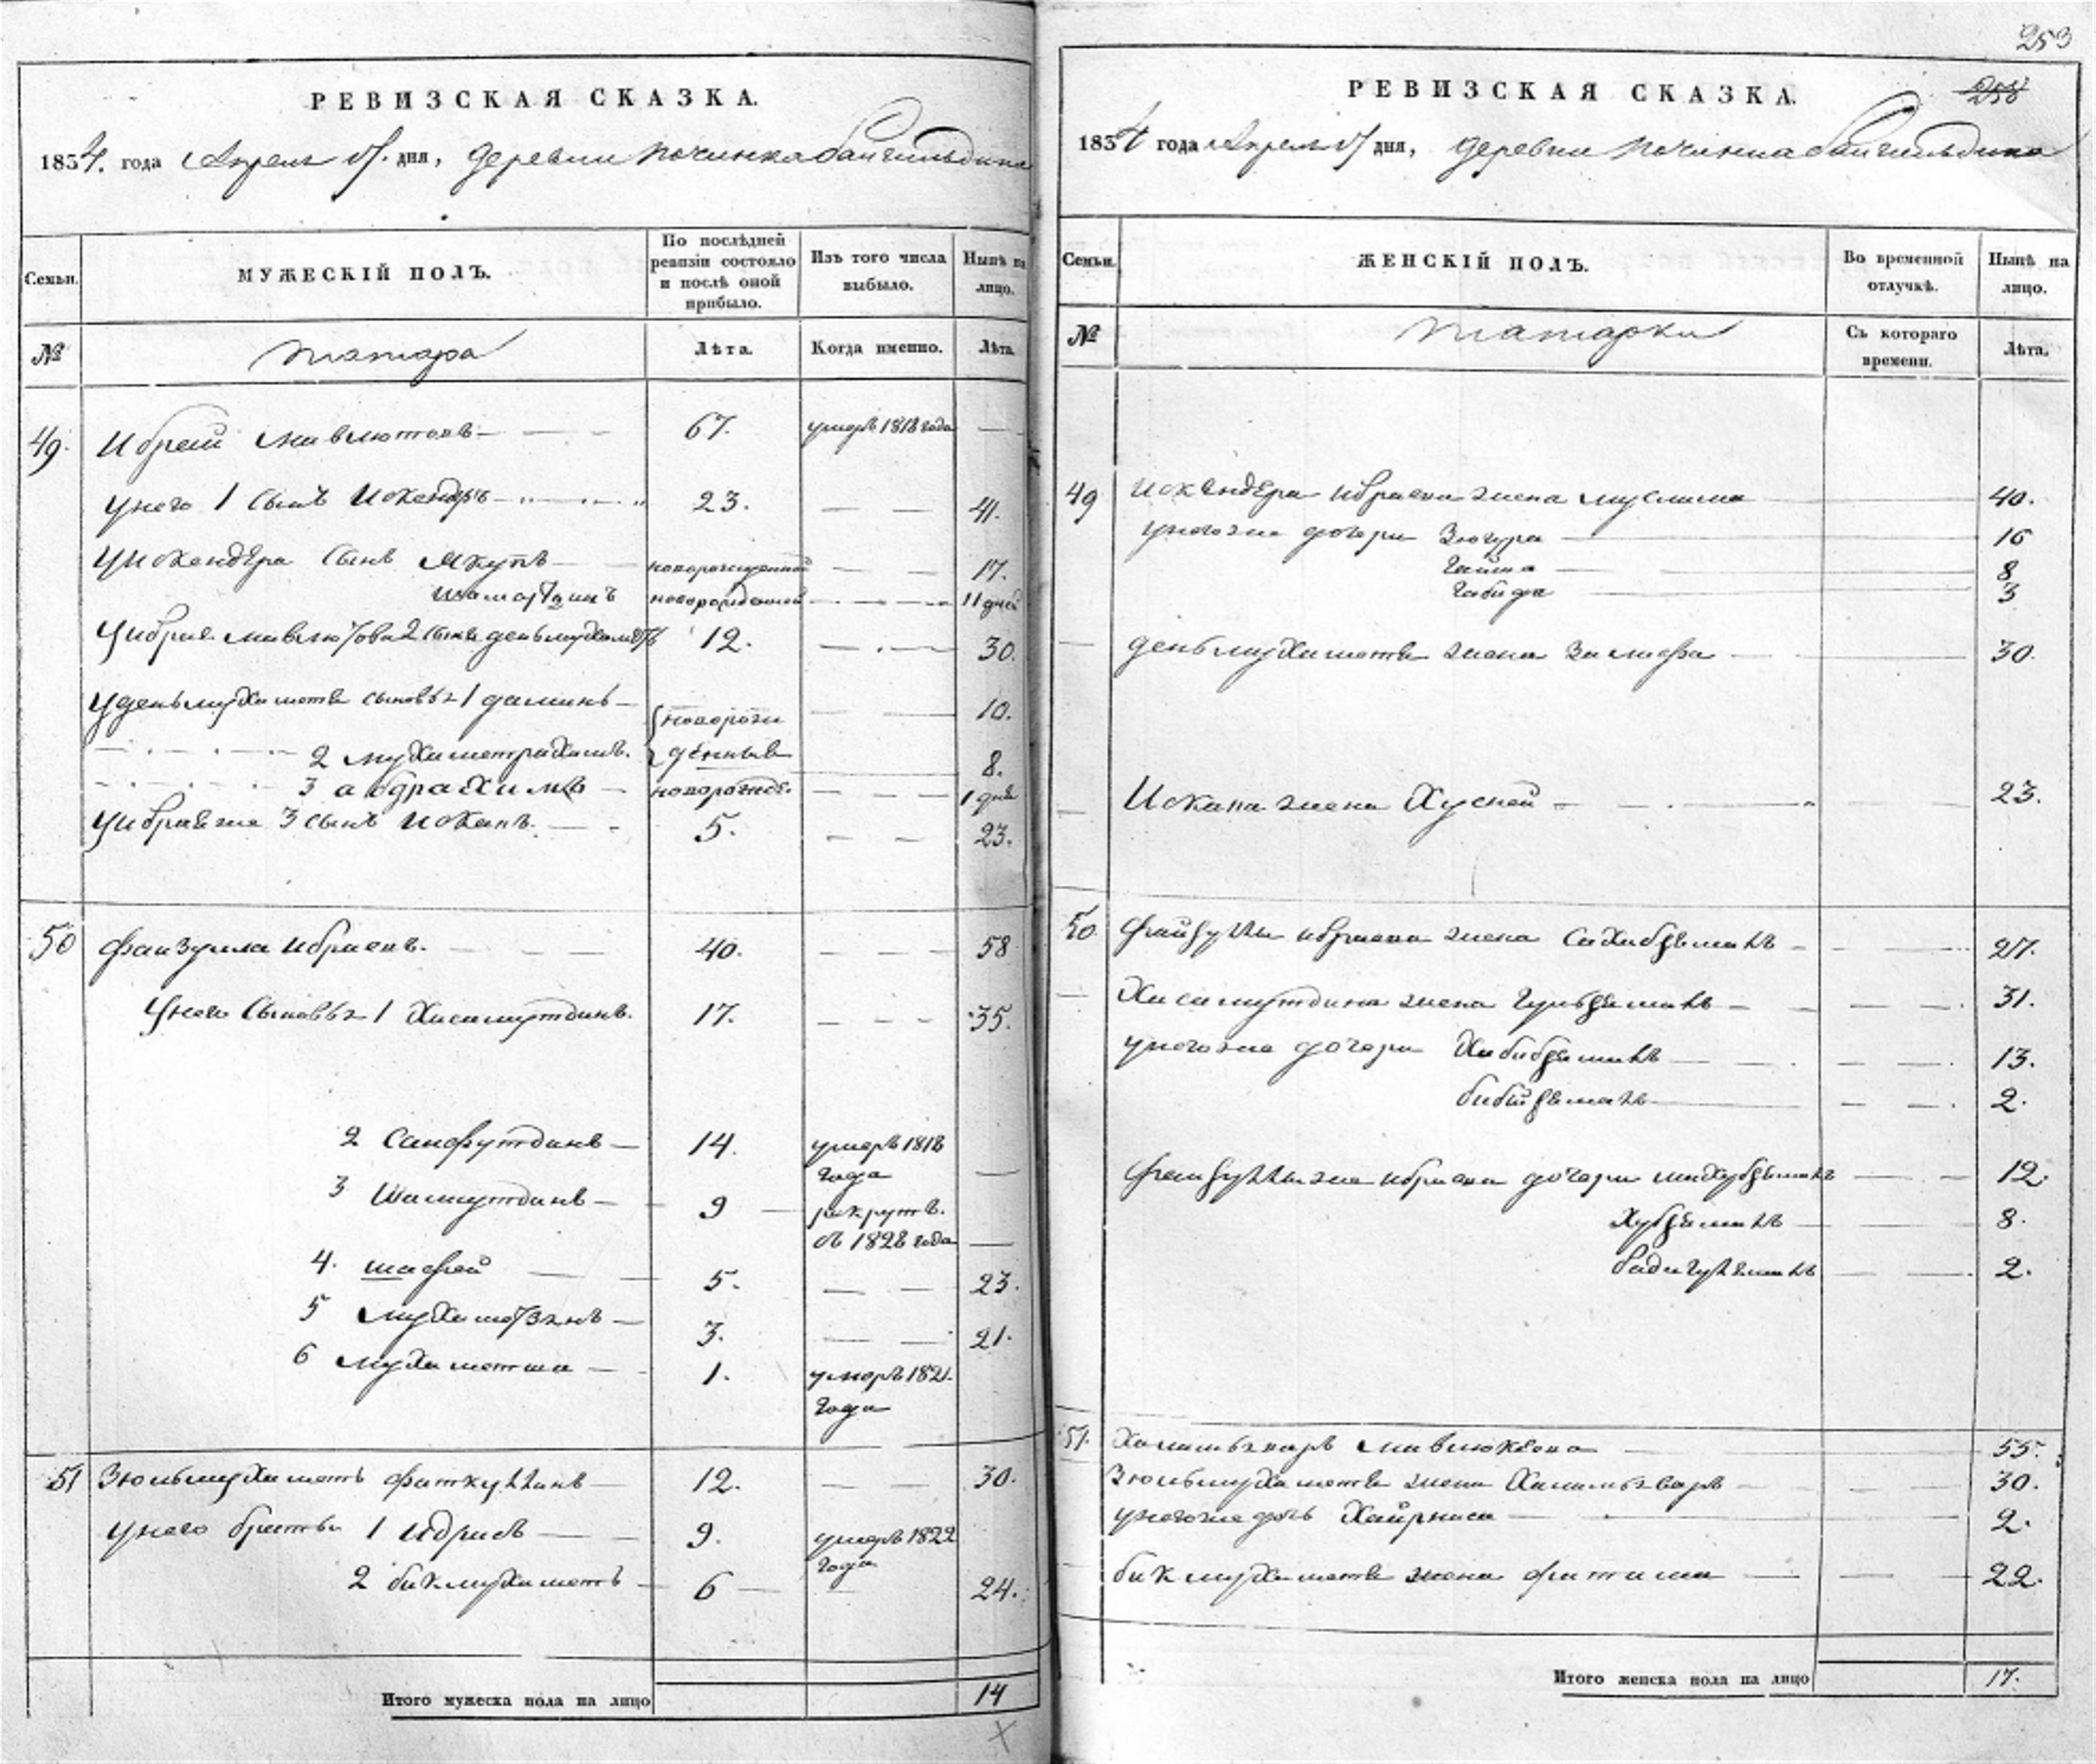 РЕВИЗСКАЯ СКАЗКА.
1834. года Апреля дня, деревни починка
Семьи.
МУЖЕСКІЙ ПОЛЪ.
По послѣдней ревизіи состояло и послѣ оной прибыло.
Изъ того числа выбыло.
Нынѣ на лицо.
№
татара
Лѣта.
Когда именно.
Лѣта.
49. Ибрай Мавлютовъ 67. умеръ 1818 года
У него 1 сынъ Искендеръ 23. 41.
У Искендера сынъ Якупъ новорожденной 17.
новорожденной 11 дней
У Ибрая Мавлютова 2 сынъ деньмухаметъ 12. 30.
У деньмухаметя сыновья 1 даминъ новорож 10.
2 мухаметрахимъ. денные 8.
3 абдрахимъ новорожде. 1 дня
У Ибрая же 3 сынъ Исканъ. 5. 23.
50 Файзулла Ибраевъ. 40. 58
У него сыновья 1 Хисамутдинъ. 17. 35.
2 Сайфутдинъ 14. умеръ 1818
года
3 Шамутдинъ 9 рекрутъ.
въ 1828 года
4. шафей 5. 23.
5 3. 21.
6 мухаметша 1. умеръ 1821.
года
51 Зюльмухаметъ Фаткуллинъ 12. 30.
У него братья 1 Идрисъ 9. умеръ 1822
года
2 бикмухаметъ 6 24.
Итого мужеска пола на лицо 14
253
РЕВИЗСКАЯ СКАЗКА.
258
1834 года Апреля дня, деревни починка
Семьи.
ЖЕНСКІЙ ПОЛЪ.
Во временной отлучкѣ.
Нынѣ на лицо.
№
татарки
Съ котораго времени.
Лѣта.
49 Искендера Ибраева жена муслима 40.
У него же дочери Зюгура 16
Гайша 8
Габида 3
деньмухаметя жена Замифа 30.
Искана жена Хусней 23.
50 Файзуллы Ибраева жена Сахибземалъ 27.
Хисамутдина жена Гульземалъ 31.
У него же дочери Хабибземалъ 13.
бибиземалъ 2.
Файзуллы же Ибраева дочери махубземалъ 12.
Хубземалъ 8.
бадигулземалъ 2.
51. 55.
Зюльмухаметя жена 30.
У него же дочь Хайрниса 2.
бикмухаметя жена фатима 22.
Итого женска пола на лицо 17.